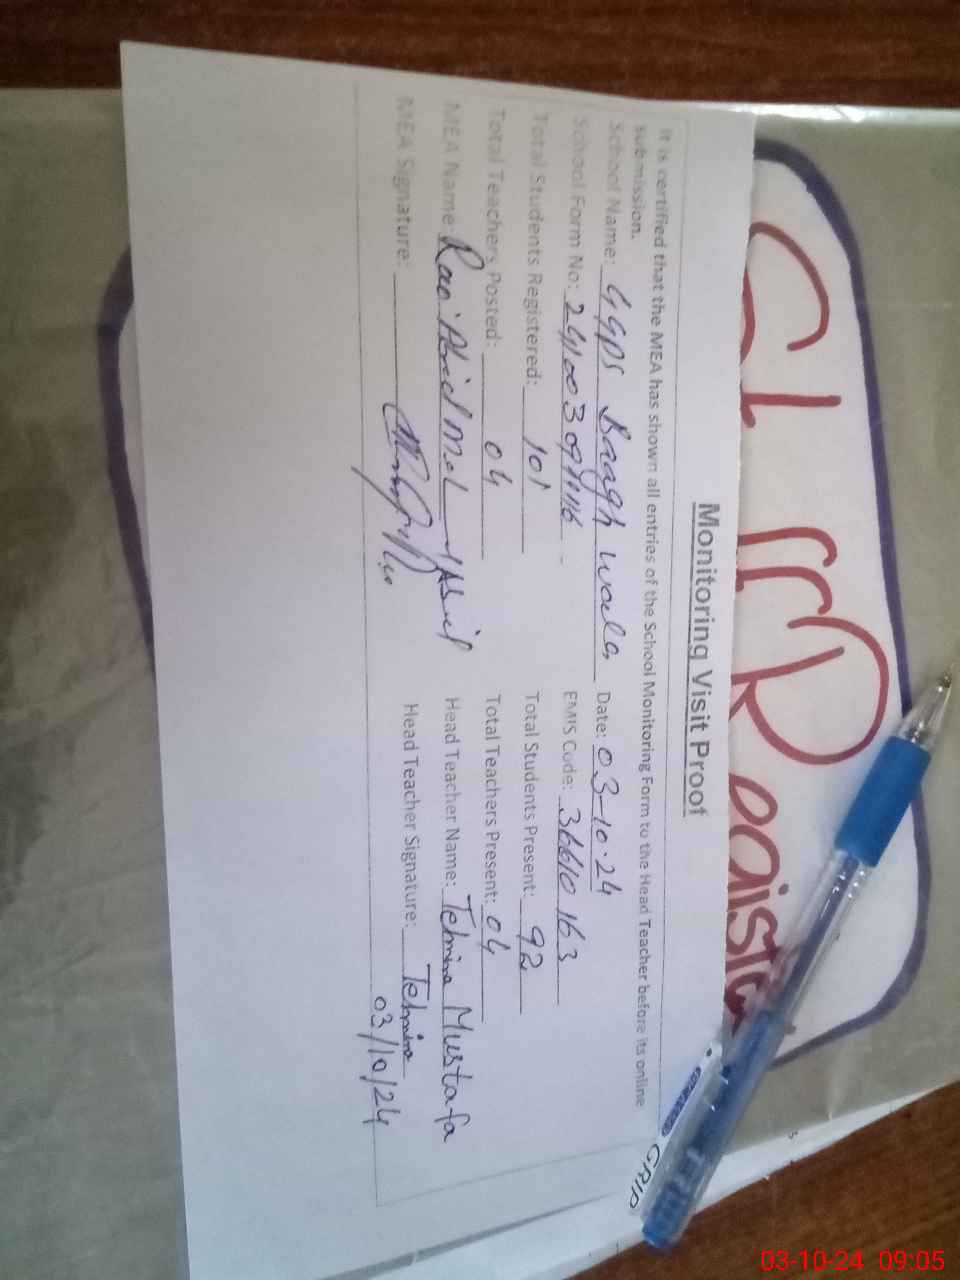 GIRP Register
Monitoring Visit Proof
It is certified that the MEA has shown all entries of the School Monitoring Form to the Head Teacher before its online
submission.
School Name: GGPS Baagh wala Date: 03-10-24
School Form No: EMIS Code: 36610163
Total Students Registered: 101 Total Students Present: 92
Total Teachers Posted: 04 Total Teachers Present: 04
MEA Name: Rao Abid Head Teacher Name: Tehmina Mustafa
MEA Signature: Head Teacher Signature: Tehmina
03/10/24
03-10-24 09:05